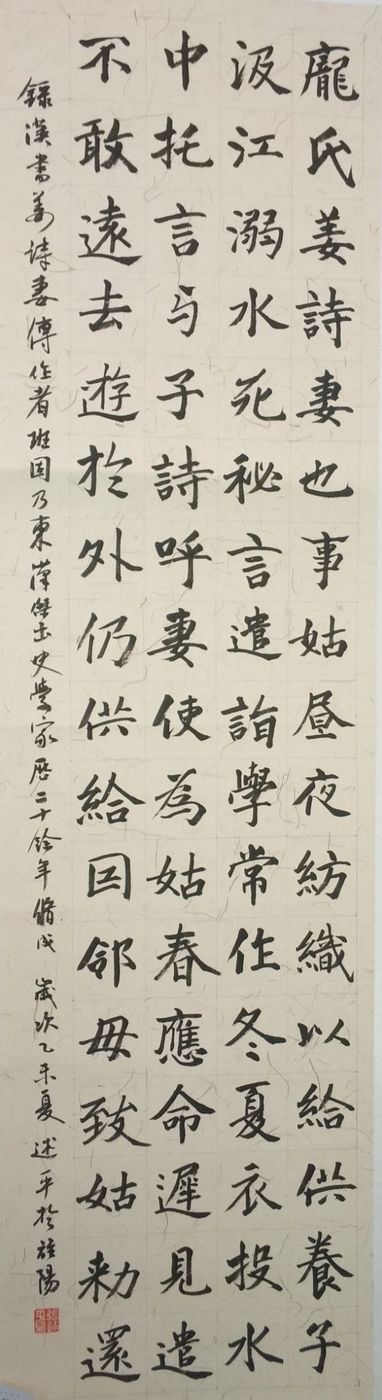 龐氏姜詩妻也事姑昼夜紡織以給供養子
汲江溺水死秘言遣詣學常作冬夏衣投水
中托言与子詩呼妻使為姑舂應命遲見遣
不敢遠去遊於外仍供給因鄰毋致姑勑還
錄漢書姜詩妻傳作者班固乃東漢傑士史學家歷二十餘年脩成 歲次乙未夏 述平於桂陽